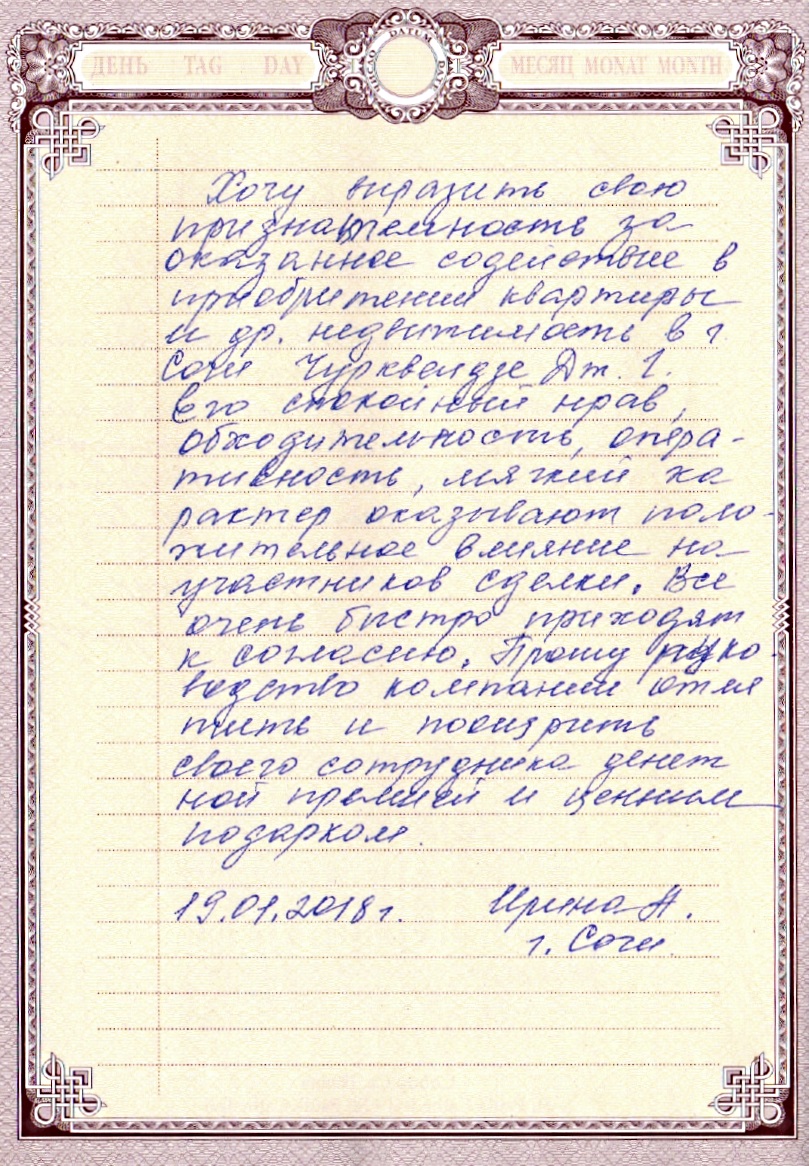 ДЕНЬ TAG DAY DATUM МЕСЯЦ MONAT MONTH
Хочу выразить свою
признательность за
оказанное содействие в
приобритении квартиры
и др. недвижимость в г
Сочи Чурквеидзе Дж. Г.
Его спокойный нрав,
обходительность, опера-
тивность, мягкий ха
рактер оказывают поло-
жительное влияние на
участников сделки. Все
очень быстро приходят
к согласию. Прошу руко-
водство компании отме
тить и поощрить
своего сотрудника денеж
ной премией и ценным
подарком.
19.01.2018г. Ирина А.
г. Сочи.